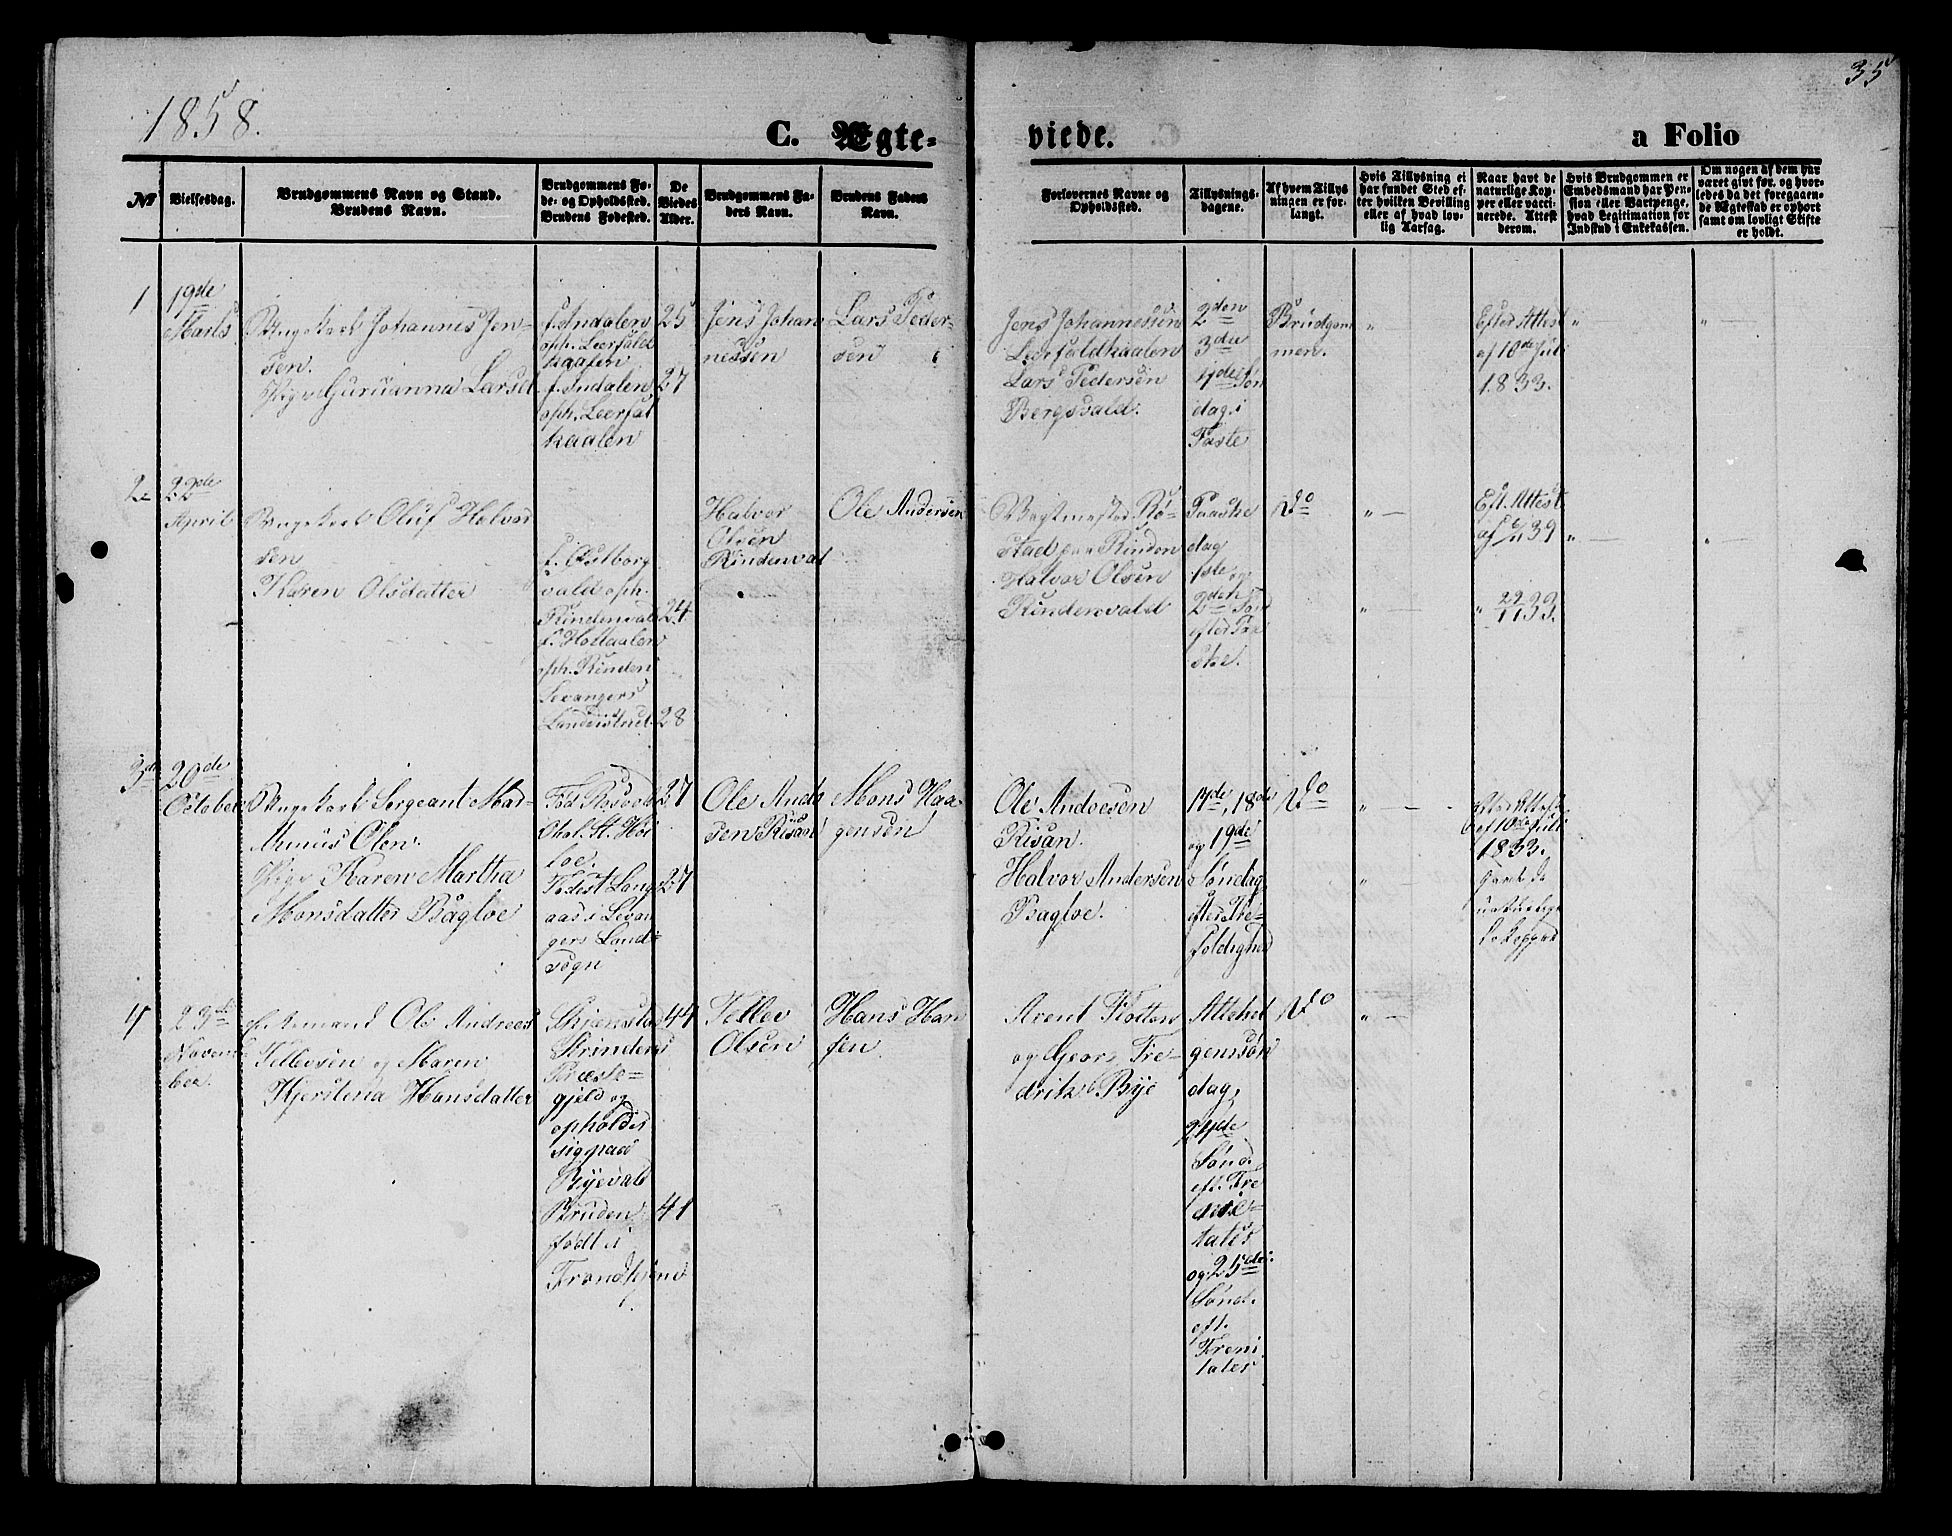 1858.
35
C. Ægte=
viede.
a Folio
№
Vielsesdag.
Brudgommens Navn og Stand.
Brudens Navn.
Brudgommens Fo-
de- og Opholdssted.
Brudens Fødested.
De
Viedes
Alder.
Brudgommens Fa-
ders Navn.
Brudens Faders
Navn.
Forlovernes Navne og
Opholdssted.
Tillysnings-
dagene.
Af hvem Tillys
ningen er for-
langt.
Hvis Tillysning ei
har fundet Sted ef-
ter hvilken Bevilling
eller af hvad lov-
lig Aarsag.
Naar havt de
naturlige Kop-
per eller vacci-
nerede. Attest
derom.
Hvis Brudgommen er
Embedsmand har Pen-
sion eller Vartpenge,
hvad Legitimation for
Indskud i Enkekassen.
Om nogen af dem har
været givt før, og hvor-
ledes da det foregaaen-
de Ægteskab er ophørt
samt om lovligt Skifte
er holdt.
1
19de
Marts
Ungekarl Johannes Jen-
sen.
Pige Gurianna Larsd
f. Indalen
oph. Leerfald
kaalen
f. Indalen
oph. Leerfal
kaalen
25
27
Jens Johan
nessen
Lars Peder-
sen
Jens Johannessen
Leerfaldkaalen
Lars Pedersen
Bergsvald.
2den
3die
4de Søn
dag i
Faste
Brudgom
men.
"
Efter Attest
af 10de Juli
1833.
"
"
2
22de
April
Ungekarl Oluf Halvor
sen
Karen Olsdatter
f. Østborg
vald oph.
Rindenvald
f. Holtaalen
oph. Rinden
Levangers
Landdistrict
24
28
Halvor
Olsen
Rindenval
Ole Andersen
Vagtmester Rø-
stad paa Rinden
Halvor Olsen
Rindenvald
Paaske
dag
1ste og
2den Sønd
efter Paa
ske.
Do
"
"
Eft. Attest
af 6/11 39
"
"
3de
20de
October
Ungekarl Sergeant Mar-
Munus Olsen.
Pige Karen Martha
Monsdatter Bagloe
Fød.
Obal. St. Hol
loe.
Fødest. Lang
aas i Levan
gers Land-
sogn
27
27
Ole Anders
sen Risan
Mons Haa-
gensen
Ole Andersen
Risan.
Halvor Andersen
Bagloe.
17de, 18de
og 19de
Søndag
efter Tre-
foldighed
Do
"
"
Efter Attest
af 10de Juli
1833.
havt de
naturlige
4
23de
Novem
ber.
Enkemand Ole Andreas
Tellevsen og Maren
Kjerstena Hansdatter
Skjenstad
Strinden
Præste-
gjeld og
opholdes
sig paa
Byevald
Bruden
født i
Trondhjem
44
41
Tellev
Olsen
Hans Han
sen.
Arent Flotten
og Georg Fre-
drik Bye
Allehel
gensøn
dag,
24de
Sønd.
eft. Tre
nita-
tates
og 25de
Sønd.
eft.
Treni
tates
Do
"